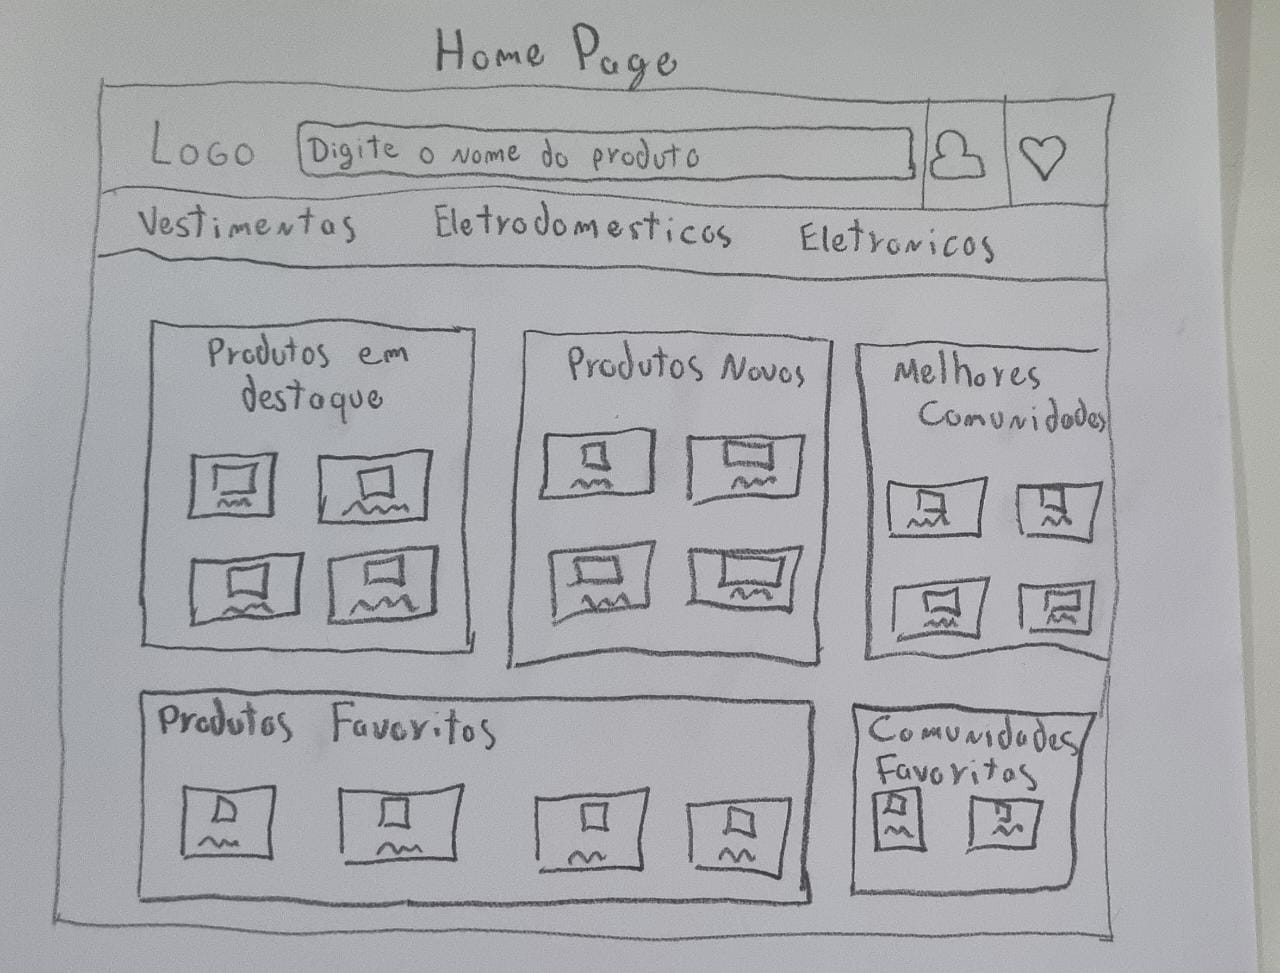 Home Page
LOGO
Digite o nome do produto
Vestimentas Eletrodomesticos Eletronicos
Produtos em
destaque
Produtos Novos
Melhores
Comunidades
Produtos Favoritos
Comunidades
Favoritas